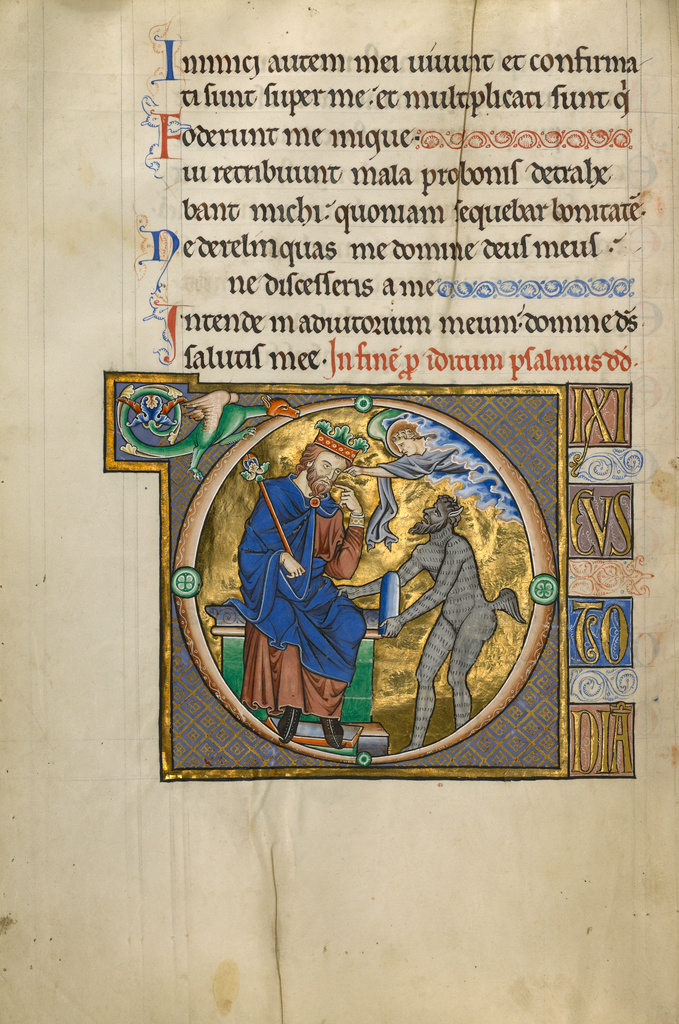 Inimici autem mei uiuunt et confirma
ti sunt super me: et multiplicati sunt q̇
Foderunt me inique:
ui retribuunt mala pro bonis detrahe
bant michi: quoniam sequebar bonitatē.
Ne derelinquas me domine deus meus:
ne discesseris a me
Intende in adiutorium meum: domine ds̄
salutis mee. In finē p iditum psalmus dd.
D
IXI
CVS
TO
DIĀ